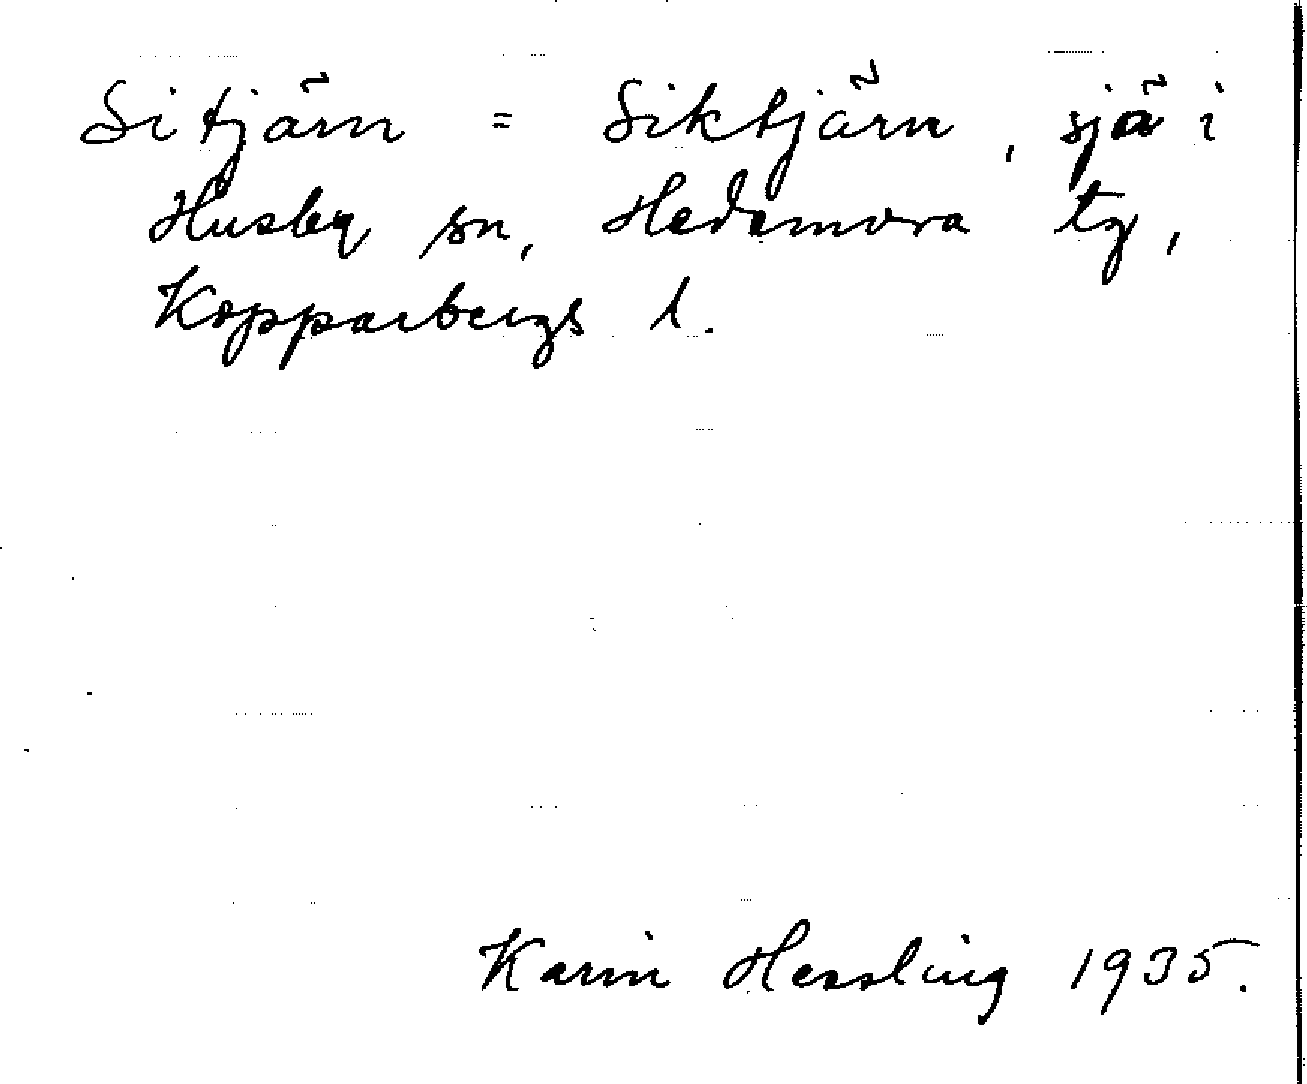 Sitjärn = Siktjärn, sjö i
Husby sn, Hedemora tg,
Kopparbergs l.
Karin Hessling 1935.